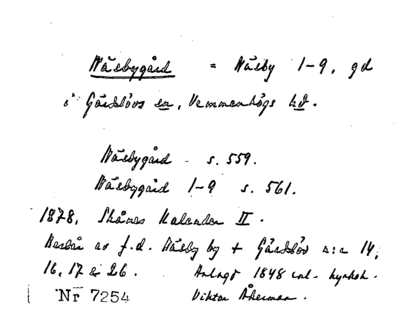 Näsbygård = Näsby 1-9, gd
i Gärdslövs sn, Vemmenhögs hd.
Näsbygård - s. 559.
Näsbygård 1-9 s. 561.
1878, Skånes Kalender II.
Består av f.d. Näsby by + Gärdslöv n:a 14,
16, 17 & 26. Anlagt 1848 enl. kyrkoh.
Nr 7254 Viktor Åkerman.